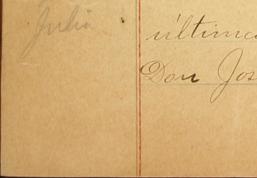 Julia
última
Don Jos